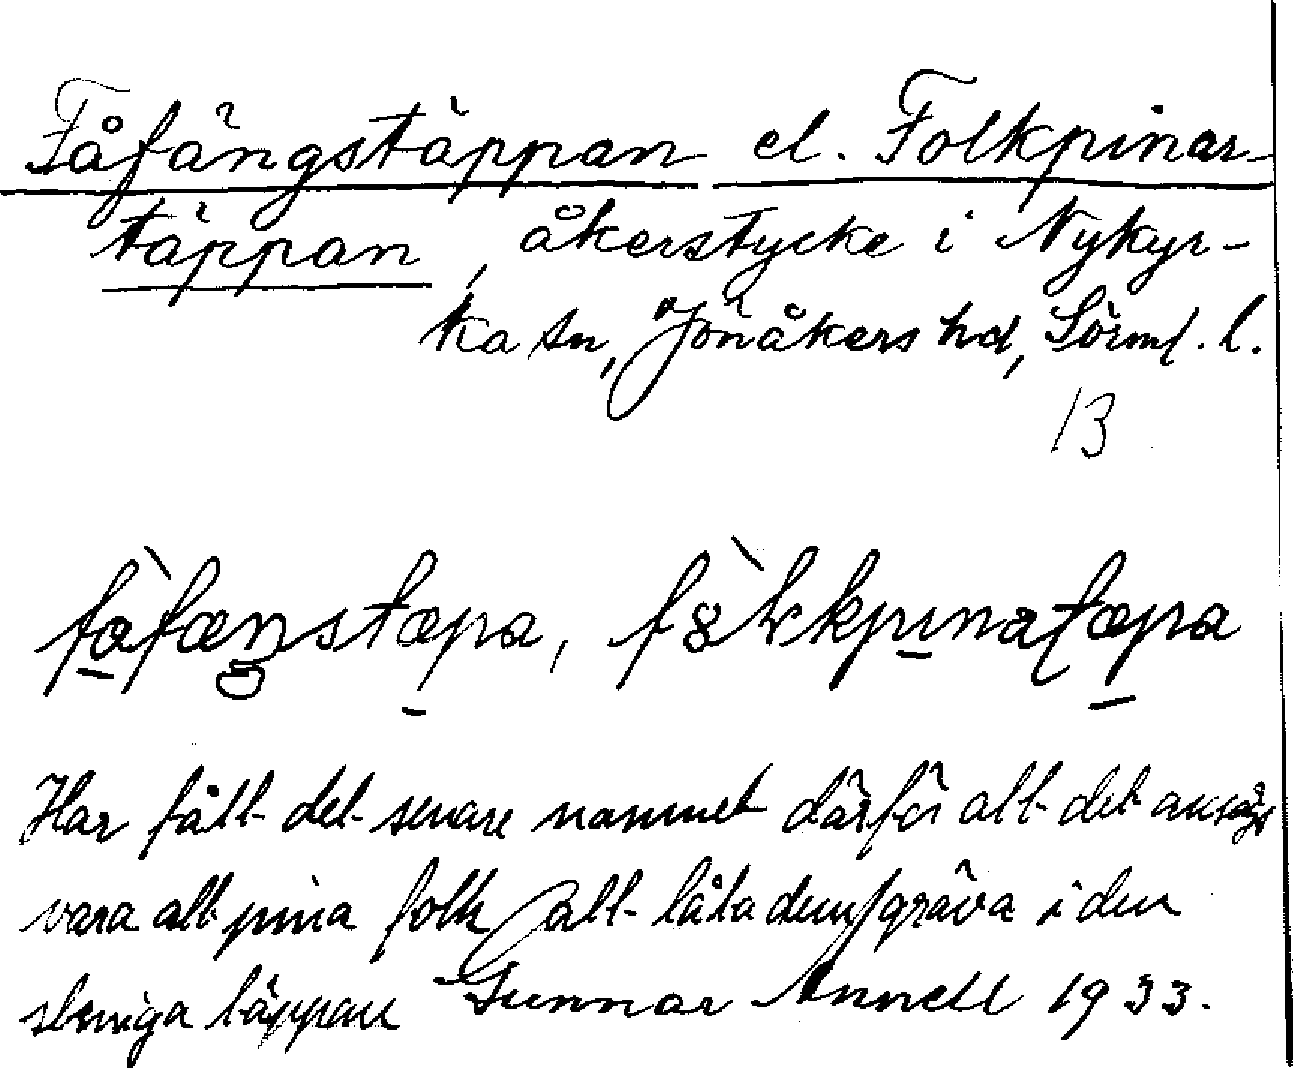 Fåfängstäppan el. Folkpinar-
täppan, åkerstycke i Nykyr-
ka sn, Jönåkers hd, Sörml. l.
13
fåfæŋstæpa, fɔ̀ḷkpinaṭæpa
Har fått det senare namnet därför att det ansågs
vara att pina folk att låta dem gräva i den
steniga täppan Gunnar Annell 1933.